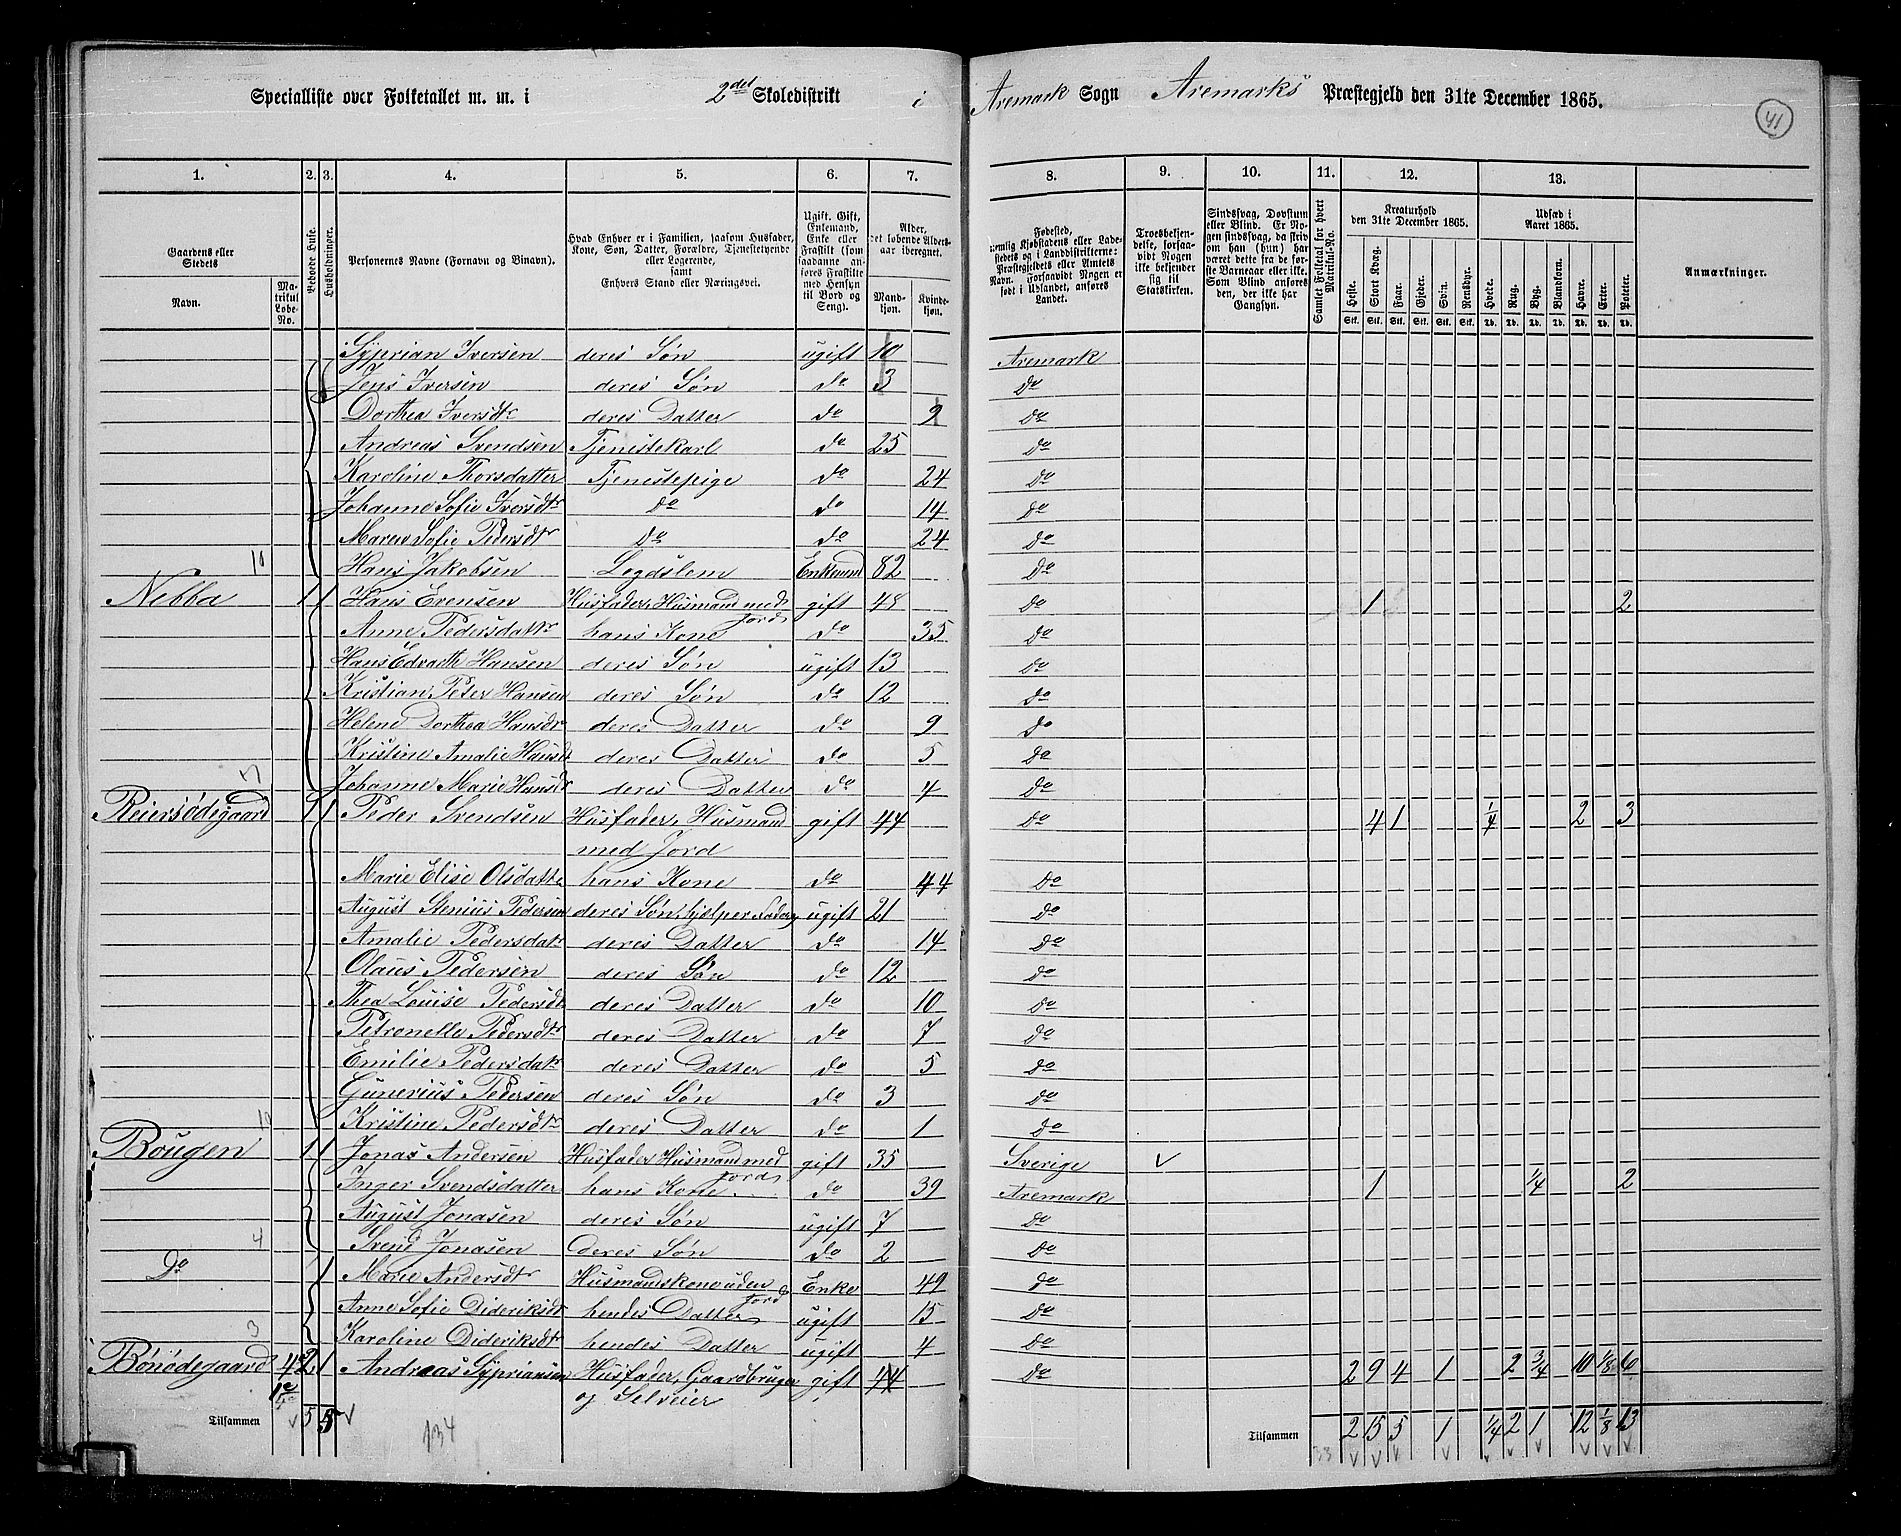 Specialliste over Folketallet m. m. i 2det Skoledistrikt i Aremark Sogn Aremarks Præstegjeld den 31te December 1865.
41
1. 2. 3. 4. 5. 6. 7. 8. 9. 10. 11. 12. 13.
Gaardens eller Stedets
Navn.
Matrikul Løbe-No.
Beboede Huse.
Husholdninger.
Personernes Navne (Fornavn og Binavn).
Hvad Enhver er i Familien, saasom Husfader, Kone, Søn, Datter, Forældre, Tjenestetyende eller Logerende, samt Enhvers Stand eller Næringsvei.
Ugift, Gift, Enkemand, Enke eller Fraskilt (som saadanne anføres Fraskilte med Hensyn til Bord og Seng).
Alder, det løbende Aldersaar iberegnet.
Mandkjøn. Kvindekjøn.
Troesbekjendelse, forsaavidt Nogen ikke bekjender sig til Statskirken.
Sindssvag, Døvstum eller Blind. Er Nogen sindssvag, da skrives om han (hun) har været dette fra de første Barneaar eller ikke. Som Blind anføres den, der ikke har Gangsyn.
Samlet Folketal for hvert Matrikul-No.
Kreaturhold den 31te December 1865.
Heste. Stort Kvæg. Faar. Gjeder. Sviin. Rensdyr.
Udsæd i Aaret 1865.
Hvede. Rug. Byg. Blandkorn. Havre. Erter. Poteter.
Anmærkninger.
Syprian Iversen deres Søn ugift 10 Aremark
Jens Iversen deres Søn do 3 do
Dorthea Iversdtr deres Datter do 2 do
Andreas Svendsen Tjenestekarl do 25 do
Karoline Thorsdatter Tjenestepige do 24 do
Johanne Sofie Iversdtr do do 14 do
Maren Sofie Pedersdtr do do 24 do
10 Hans Jakobsen Legdslem Enkemnd 82 do
Nebba 1 1 Hans Evensen Husfader, Husmand med Jord gift 48 do 1 2
Anne Pedersdattr hans Kone do 35 do
Hans Edvarth Hansen deres Søn ugift 13 do
Kristian Peter Hansen deres Søn do 12 do
Helene Dorthea Hansdtr deres Datter do 9 do
Kristine Amalie Hansdt deres Datter do 5 do
7 Johanne Marie Hansdtr deres Datter do 4 do
Reiersødegaard 1 1 Peder Svendsen Husfader, Husmand gift 44 do 4 1 1/4 2 3
med Jord
Marie Elise Olsdatter hans Kone do 44 do
August Stenius Pedersen deres Søn, hjelper Faderen ugift 21 do
Amalie Pedersdatr deres Datter do 14 do
Olaus Pedersen deres Søn do 12 do
Thea Louise Pedersdt deres Datter do 10 do
Petronelle Pedersdtr deres Datter do 7 do
Emilie Pedersdatr deres Datter do 5 do
Gunerius Pedersen deres Søn do 3 do
10 Kristine Pedersdtr deres Datter do 1 do
Bougen 1 1 Jonas Andersen Husfader Husmand med Jord gift 35 Sverige
Inger Svendsdatter hans Kone do 39 Aremark 1 1/4 2
August Jonasen deres Søn ugift 7 do
4 Svend Jonasen deres Søn do 2 do
Do 1 Marie Andersdt Husmandskone uden Jord Enke 49 do
Anne Sofie Dideriksdt hendes Datter ugift 15 do
3 Karoline Dideriksdtr hendes Datter ugift 4 do
Bönödegaard 2 1 Andreas Syprianssen Husfader, Gaardbruger gift 44 do 2 9 4 1 2 3/4 10 1/8 6
og Selveier
Tilsammen 5 5 134 Tilsammen 2 15 5 1 1/4 2 1 12 1/8 13
33